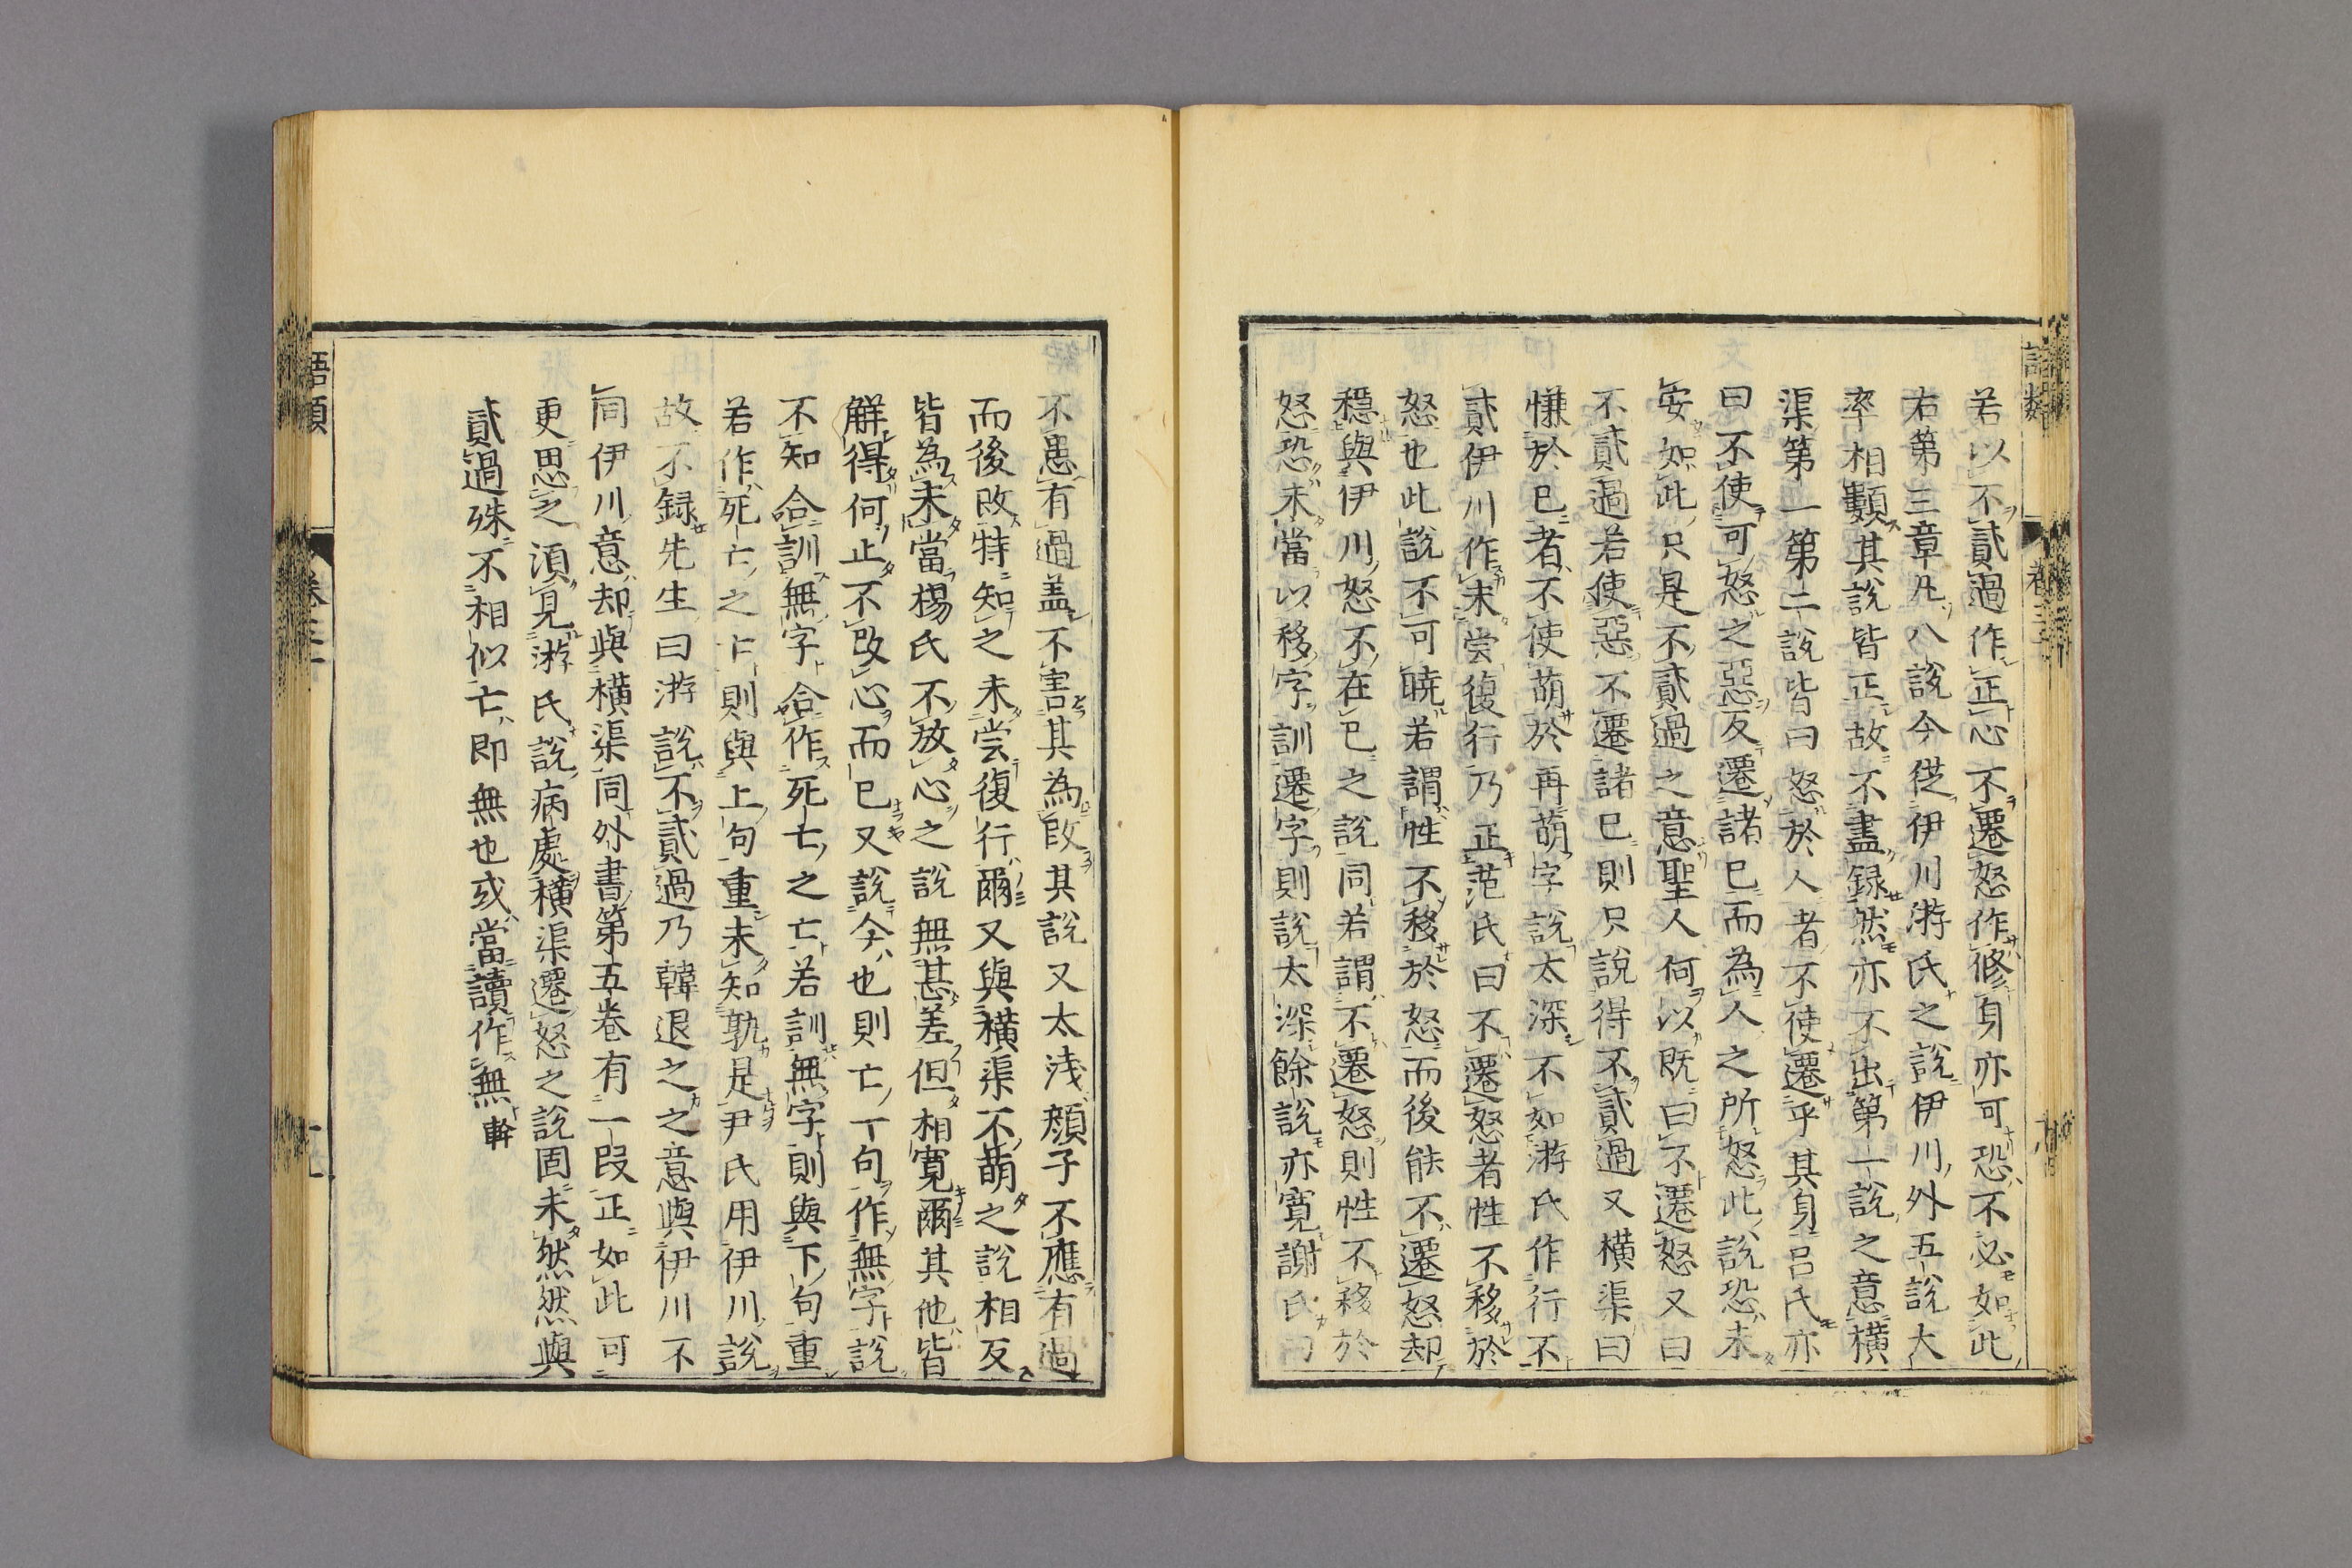 若以不貳過作正心不遷怒作修身亦可恐不必如此
右第三章凡八說今從伊川游氏之說伊川外五說大
率相類其說皆正故不盡録然亦不出第一說之意橫
渠第一第二說皆曰怒於人者不使遷乎其身呂氏亦
曰不使可怒之惡反遷諸已而為人之所怒此說恐未
安如此只是不貳過之意聖人何以既曰不遷怒又曰
不貳過若使惡不遷諸已則只說得不貳過又橫渠曰
慊於已者不使萌於再萌字說太深不如游氏作行不
貳伊川作未嘗復行乃正范氏曰不遷怒者性不移於
怒也此說不可曉若謂性不移於怒而後能不遷怒却
穩與伊川怒不在已之說同若謂不遷怒則性不移於
怒恐未當以移字訓遷字則說太深餘說亦寬謝氏曰
不患有過盖不害其為改其說又太淺顔子不應有過
而後改特知之未嘗復行爾又與橫渠不萌之說相反
皆為未當楊氏不放心之說無甚差但相寬爾其他皆
解得何止不改心而已又說今也則亡一句作無字說
不知合訓無字合作死亡之亡若訓無字則與下句重
若作死亡之亡則與上句重未知孰是尹氏用伊川說
故不録先生曰游說不貳過乃韓退之之意與伊川不
同伊川意却與橫渠同外書第五卷有一段正如此可
更思之須見游氏說病處橫渠遷怒之說固未然然與
貳過殊不相似亡即無也或當讀作無 榦
語類
卷三十